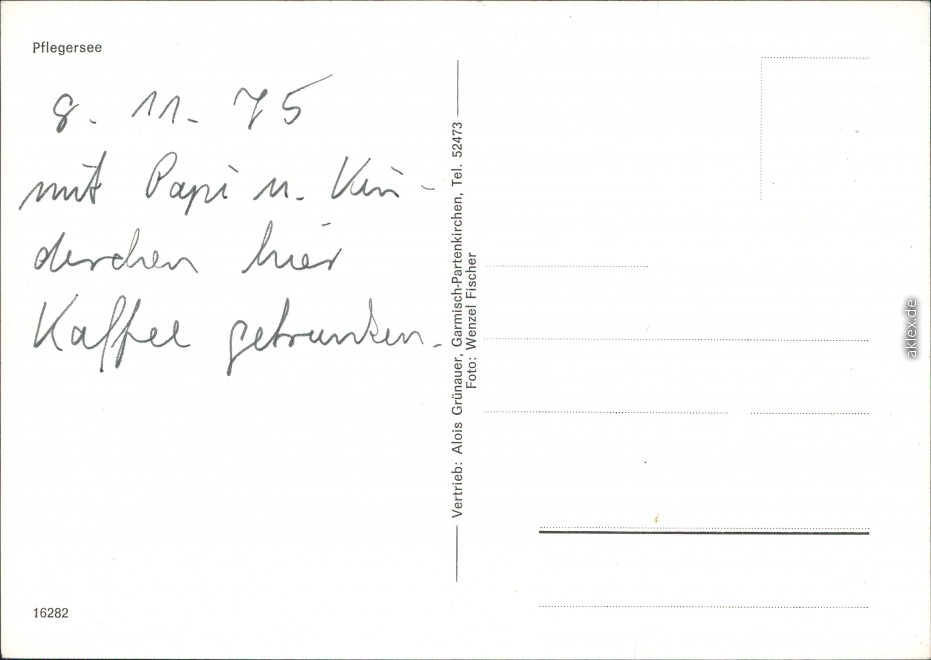 Pflegersee
8. 11. 75
mit Papi u. Kin-
derchen hier
Kaffee getrunken.
16282
Vertrieb: Alois Grünauer, Garmisch-Partenkirchen, Tel. 52473
Foto: Wenzel Fischer
aklex.de